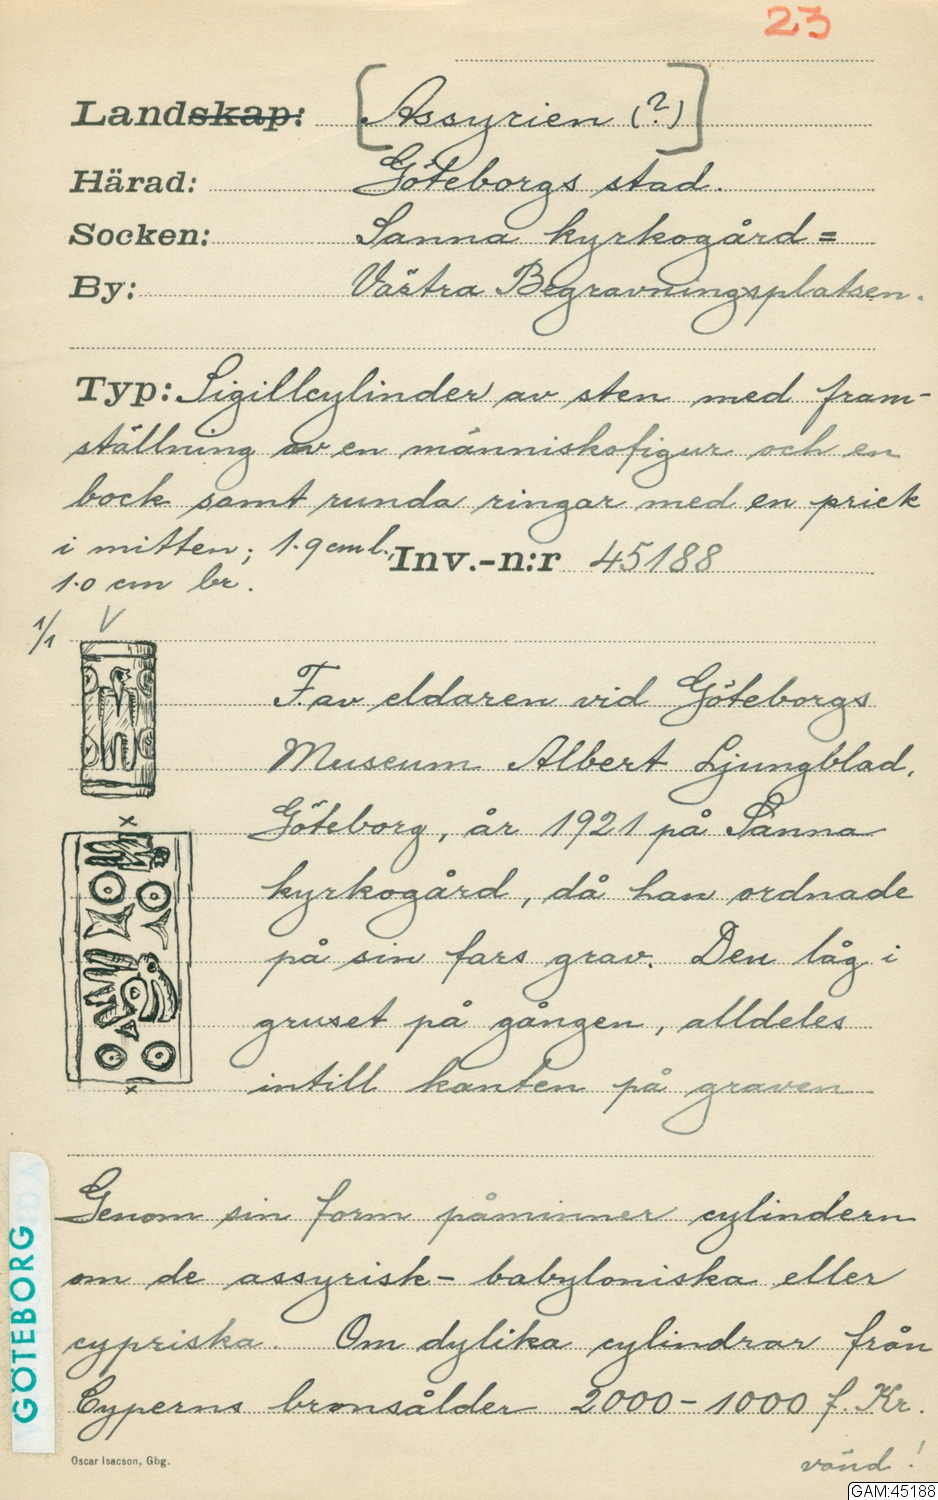 23
Landskap: [Assyrien (?)]
Härad: Göteborgs stad.
Socken: Sanna kyrkogård =
By: Västra Begravningsplatsen.
Typ: Sigillcylinder av sten med fram-
ställning av en människofigur och en
bock samt runda ringar med en prick
i mitten; 1.9 cm l.,
1.0 cm br.
Inv.-n:r 45188
1/1
F. av eldaren vid Göteborgs
Museum Albert Ljungblad,
Göteborg, år 1921 på Sanna
kyrkogård, då han ordnade
på sin fars grav. Den låg i
gruset på gången, alldeles
intill kanten på graven
x
x
Genom sin form påminner cylindern
om de assyrisk-babyloniska eller
cypriska. Om dylika cylindrar från
Cyperns bronsålder 2000-1000 f. Kr.
vänd!
GÖTEBORG
Oscar Isacson, Gbg.
GAM:45188